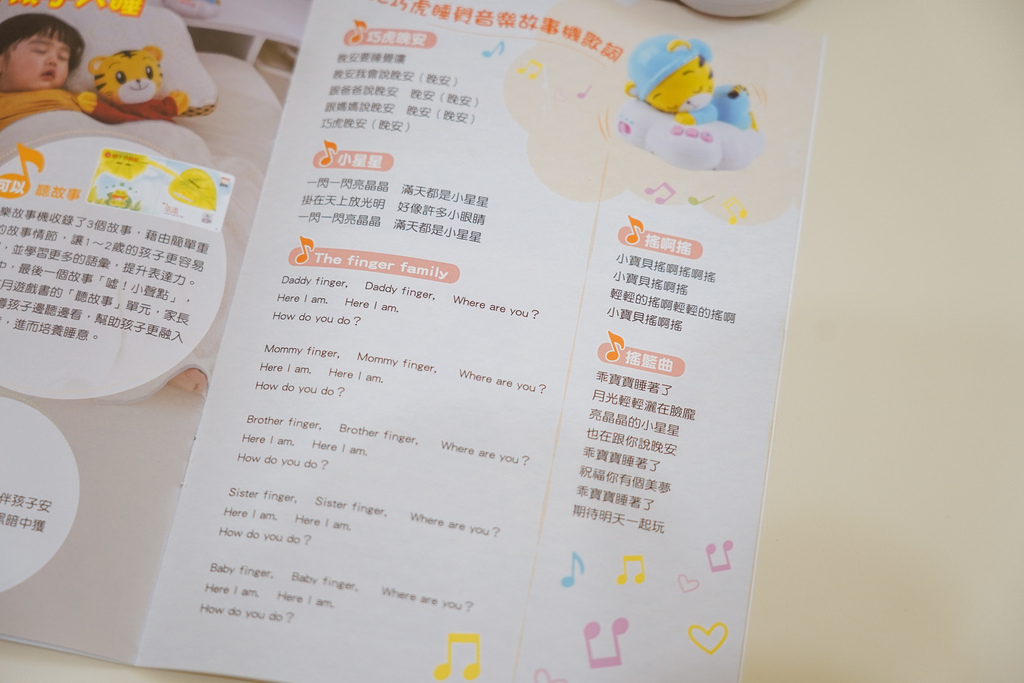 聽故事
可以
樂故事機收錄了3個故事，藉由簡單重
的故事情節，讓1～2歲的孩子更容易
，並學習更多的語彙，提升表達力。
中，最後一個故事「噓！小聲點」，
月遊戲書的「聽故事」單元，家長
孩子邊聽邊看，幫助孩子更融入
，進而培養睡意。
伴孩子安
黑暗中獲
巧虎睡覺音樂故事機歌詞
巧虎晚安
晚安要睡覺囉
晚安我會說晚安（晚安）
跟爸爸說晚安　晚安（晚安）
跟媽媽說晚安　晚安（晚安）
巧虎晚安（晚安）
小星星
一閃一閃亮晶晶　滿天都是小星星
掛在天上放光明　好像許多小眼睛
一閃一閃亮晶晶　滿天都是小星星
The finger family
Daddy finger, Daddy finger, Where are you？
Here I am. Here I am.
How do you do？
Mommy finger, Mommy finger, Where are you？
Here I am. Here I am.
How do you do？
Brother finger, Brother finger, Where are you？
Here I am. Here I am.
How do you do？
Sister finger, Sister finger, Where are you？
Here I am. Here I am.
How do you do？
Baby finger, Baby finger, Where are you？
Here I am. Here I am.
How do you do？
搖啊搖
小寶貝搖啊搖啊搖
小寶貝搖啊搖
輕輕的搖啊輕輕的搖啊
小寶貝搖啊搖
搖籃曲
乖寶寶睡著了
月光輕輕灑在臉龐
亮晶晶的小星星
也在跟你說晚安
乖寶寶睡著了
祝福你有個美夢
乖寶寶睡著了
期待明天一起玩